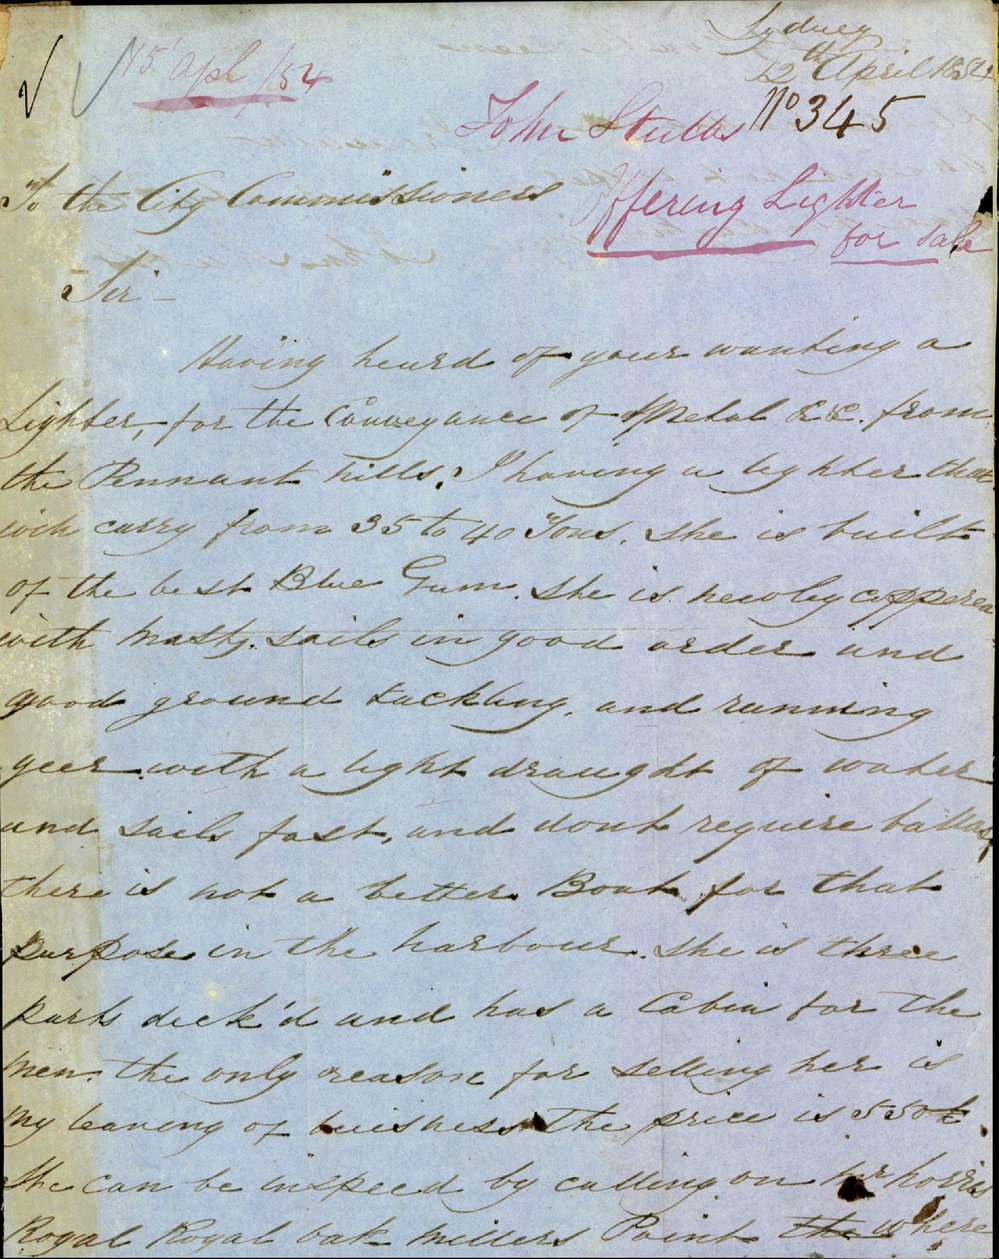 Sydney
12th April 1854
15 Apl /54
No 345
John Stubbs
To the City Commissioners
Offering Lighter
for Sale
Sir -
Having heard of your wanting a
Lighter, for the Conveyance of Metal &c. from
the Pennant hills, I having a lighter that
will carry from 35 to 40 Tons. She is built
of the best Blue Gum. She is newly coppered
with Masts. Sails in good order and
good ground tackling, and running
geer with a light draught of water
and sails fast, and dont require ballast
there is not a better Boat for that
purpose in the harbour. She is three
parts deck'd and has a Cabin for the
Men. the only reason for selling her is
My leaving of buisness. The price is 550£
She can be inspeed by calling on Mr
Royal Royal oak Millers Point the where